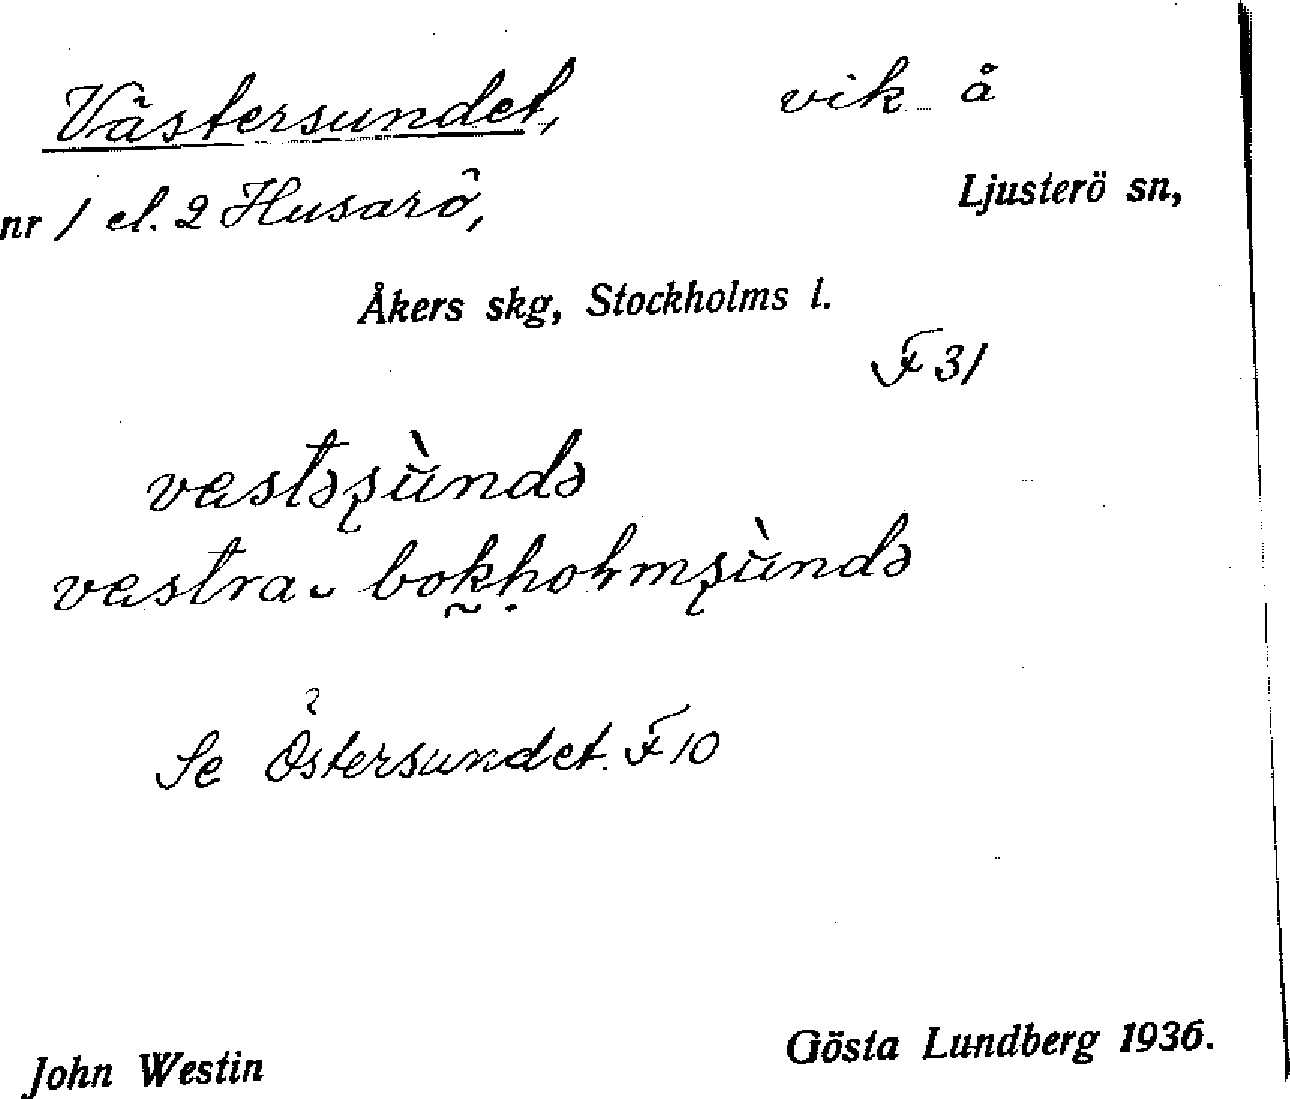 Västersundet, vik å
nr 1 el. 2 Husarö, Ljusterö sn,
Åkers skg, Stockholms l.
F 31
Se Östersundet. F 10
John Westin Gösta Lundberg 1936.